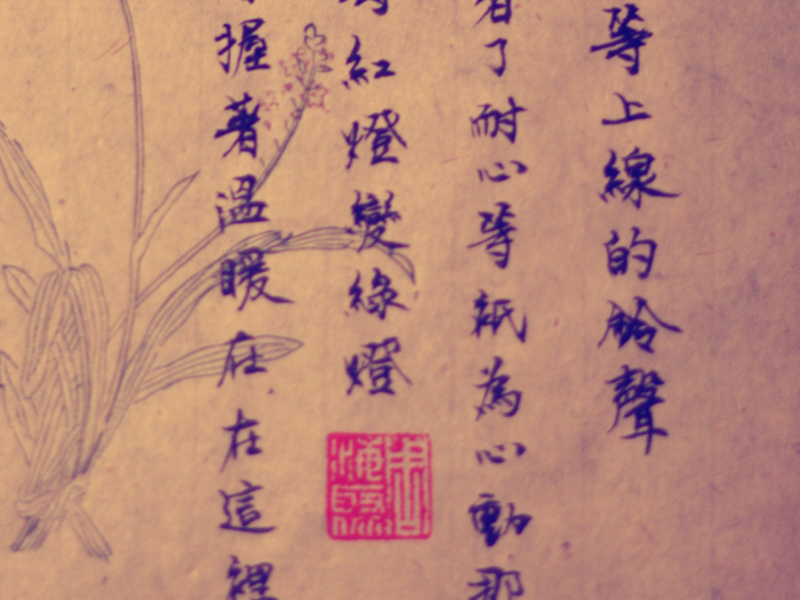 等上線的鈴聲
了耐心等祇為心動那
紅燈變綠燈
握著溫暖在在這裡